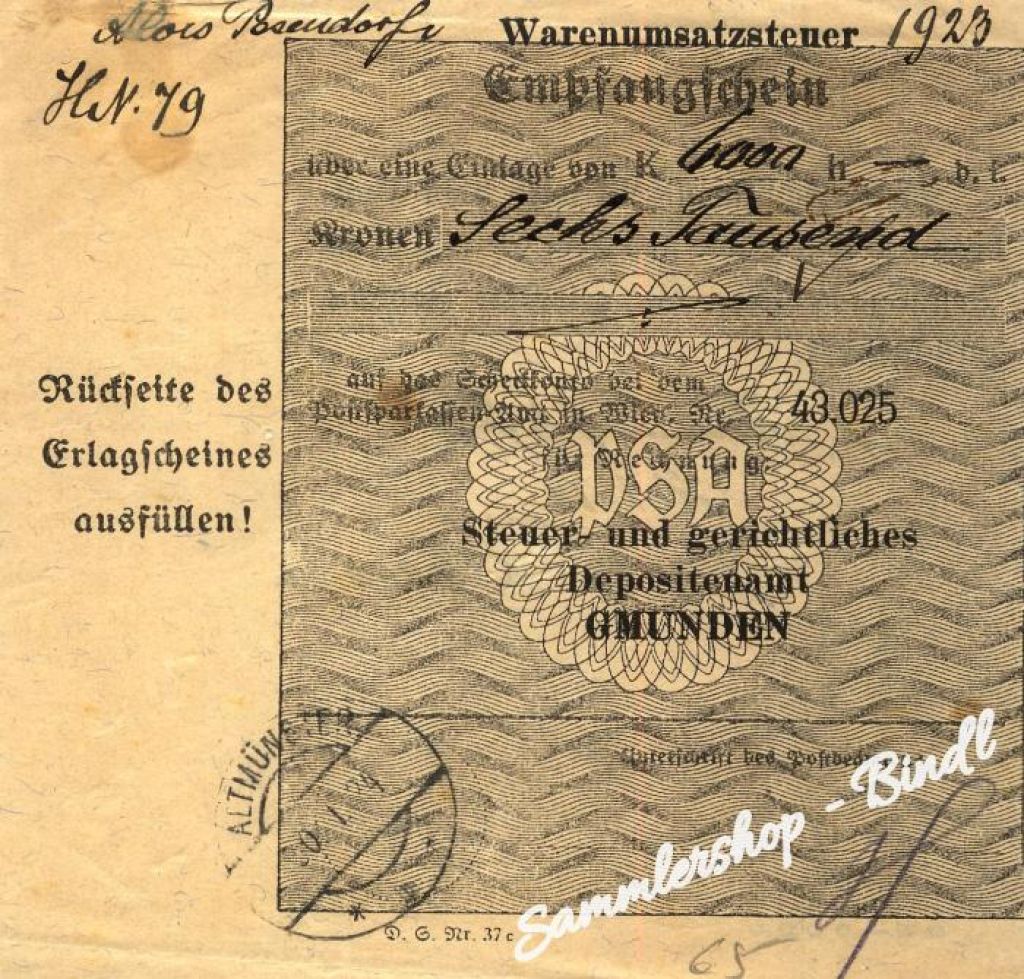 Alois
Warenumsatzsteuer 1923
HN. 79
Empfangschein
über eine Einlage von K 6000 h — d. i.
Kronen Sechs Tausend
auf das Scheckkonto bei dem
Postsparkassen-Amt in Wien, Nr. 43.025
für Rechnung
PSA
Rückseite des
Erlagscheines
ausfüllen!
Steuer- und gerichtliches
Depositenamt
GMUNDEN
ALTMÜNSTER
Unterschrift des Postbediensteten
Sammlershop - Bindl
D. S. Nr. 37c
65